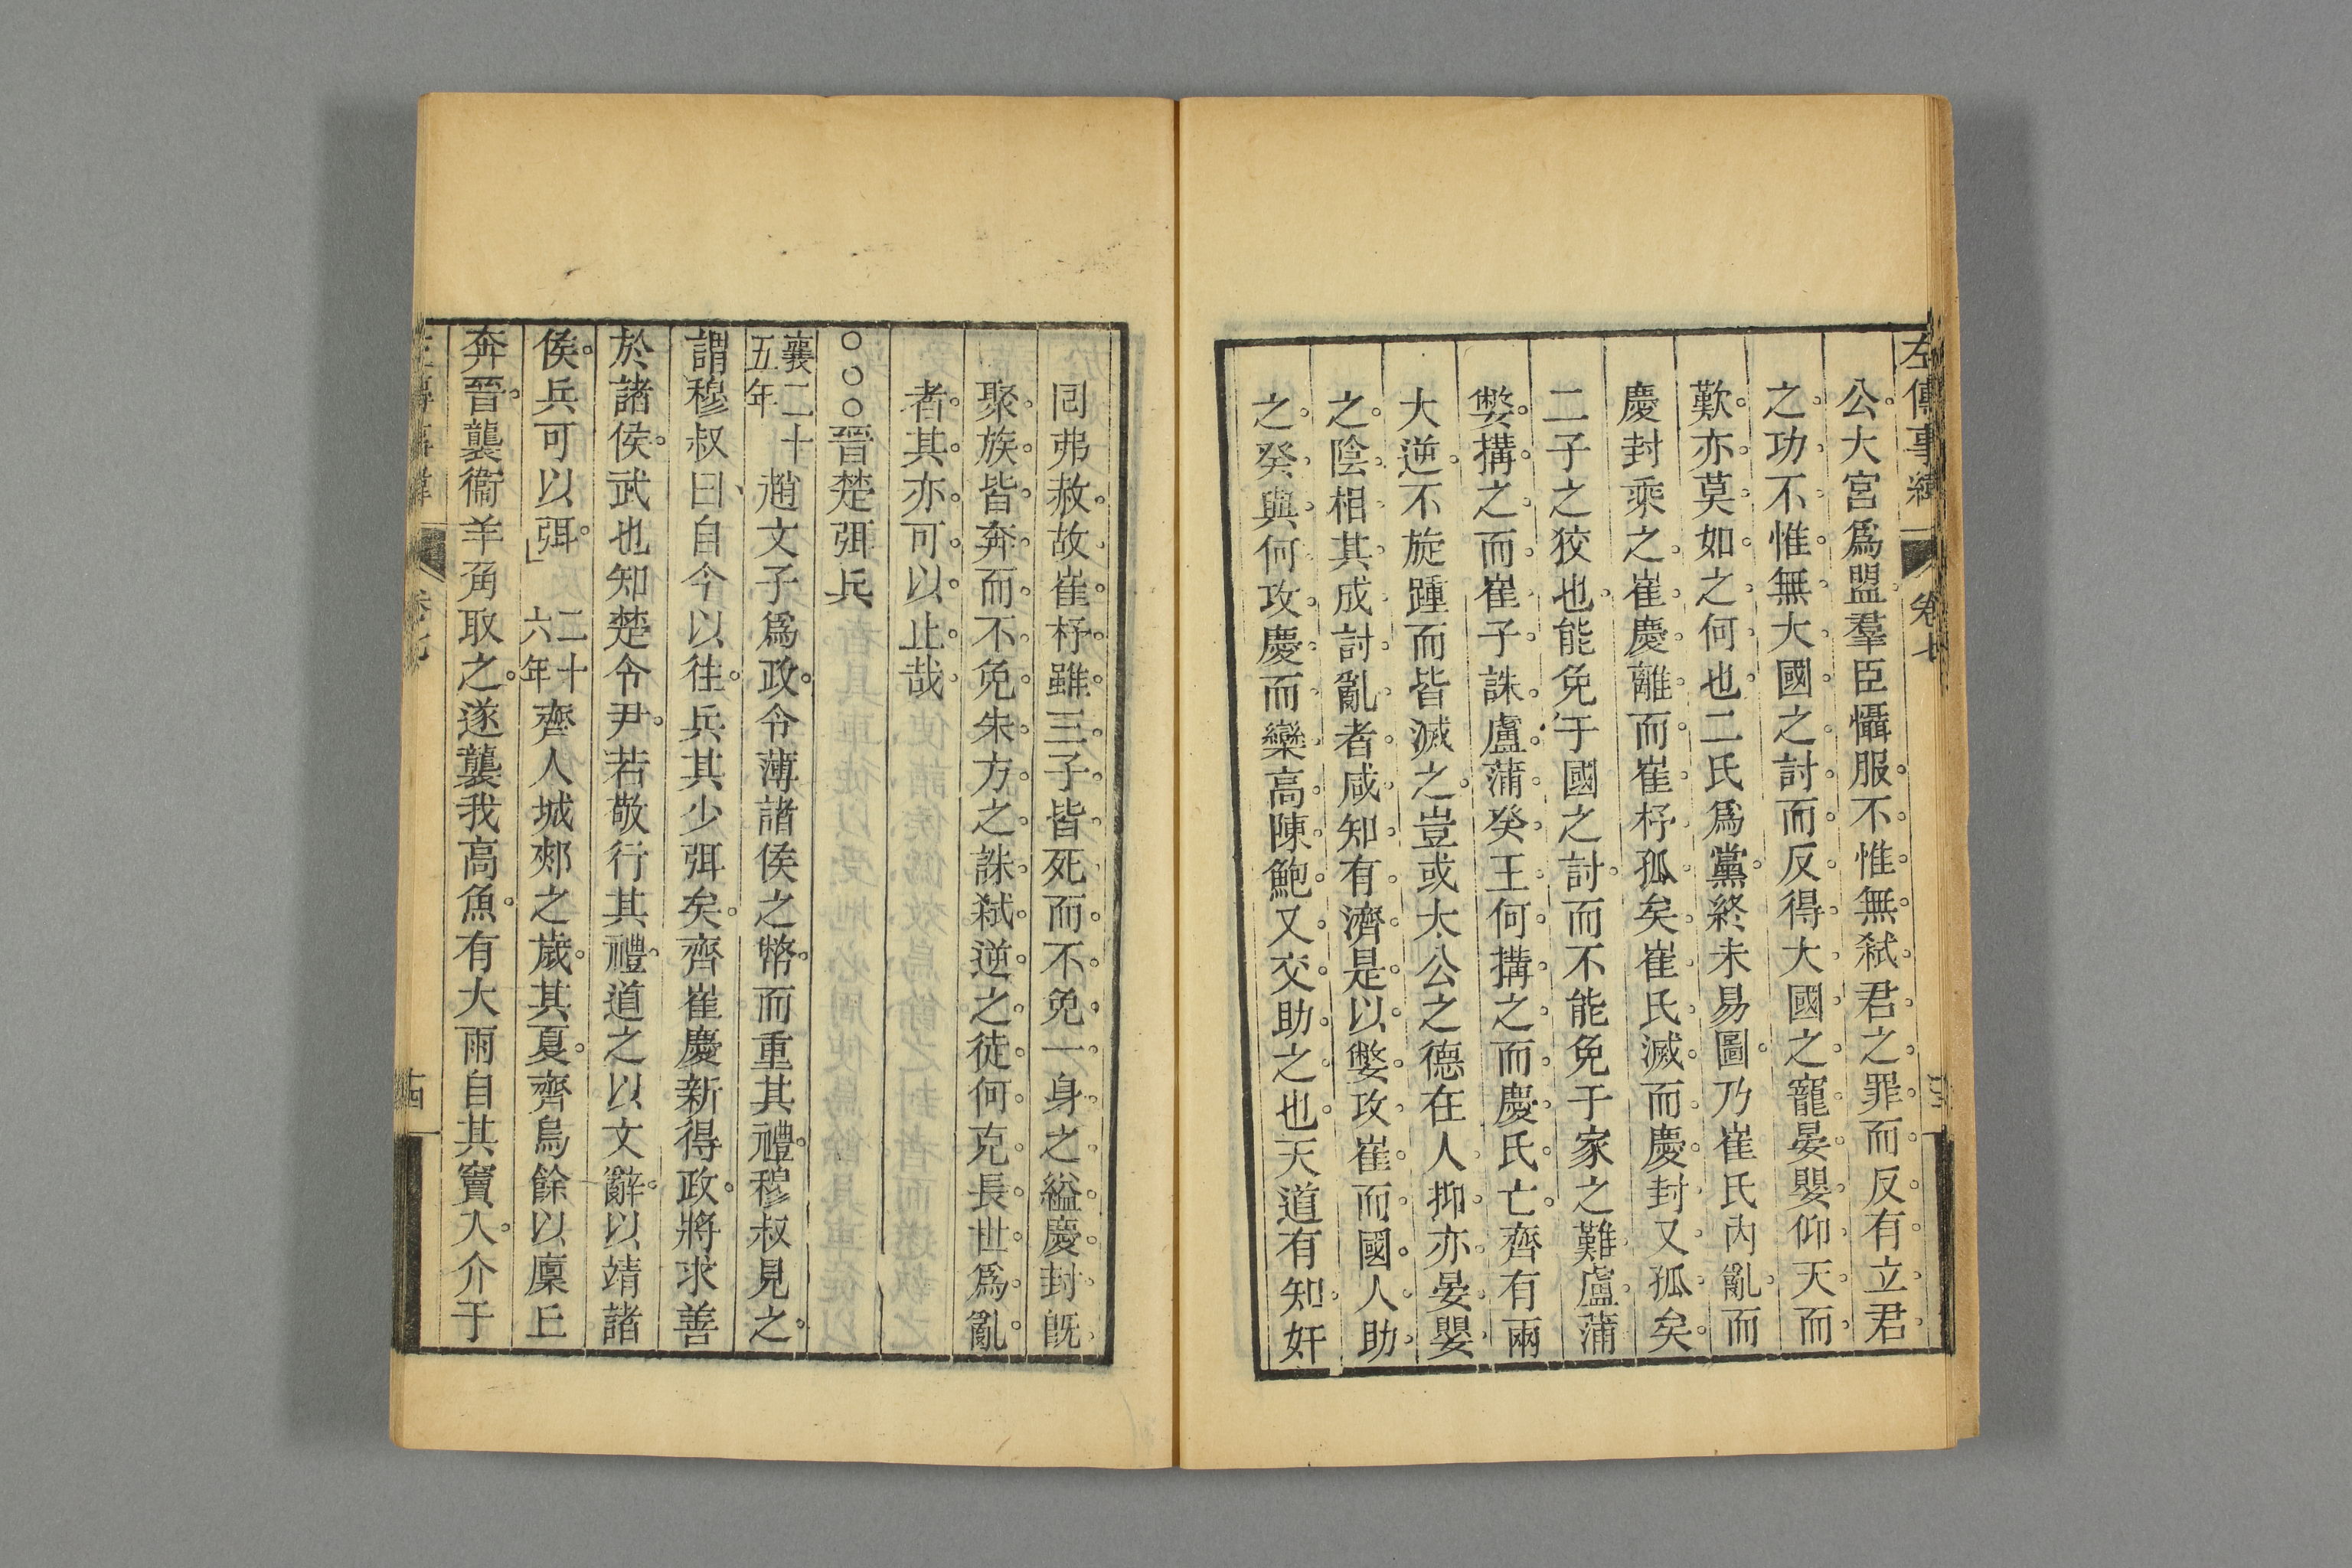 左傳事緯
卷七
公大宮爲盟羣臣懾服不惟無弑君之罪而反有立君
之功不惟無大國之討而反得大國之寵晏嬰仰天而
歎亦莫如之何也二氏爲黨終未易圖乃崔氏內亂而
慶封乘之崔慶離而崔杼孤矣崔氏滅而慶封又孤矣
二子之狡也能免于國之討而不能免于家之難盧蒲
嫳搆之而崔子誅盧蒲癸王何搆之而慶氏亡齊有兩
大逆不旋踵而皆滅之豈或太公之德在人抑亦晏嬰
之陰相其成討亂者咸知有濟是以嫳攻崔而國人助
之癸與何攻慶而欒高陳鮑又交助之也天道有知奸
囘弗赦故崔杼雖三子皆死而不免一身之縊慶封旣
聚族皆奔而不免朱方之誅弑逆之徒何克長世爲亂
者其亦可以止哉
○○○晉楚弭兵
襄二十五年趙文子爲政令薄諸侯之幣而重其禮穆叔見之
謂穆叔曰自今以往兵其少弭矣齊崔慶新得政將求善
於諸侯武也知楚令尹若敬行其禮道之以文辭以靖諸
侯兵可以弭」二十六年齊人城郟之歲其夏齊烏餘以廩丘
奔晉襲衞羊角取之遂襲我高魚有大雨自其竇入介于
左傳事緯
卷七
十四